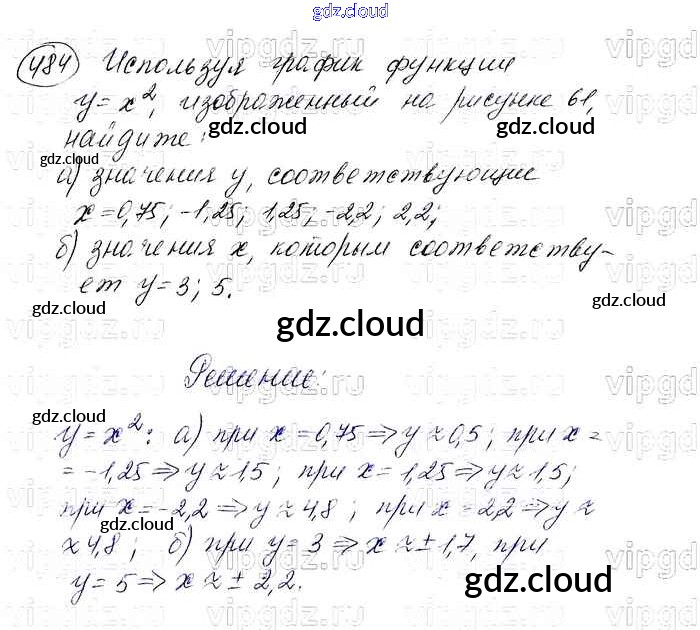 gdz.cloud
484 Используя график функции
y = x², изображенный на рисунке 61,
найдите:
gdz.cloud gdz.cloud
gdz.cloud
а) значения y, соответствующие
x = 0,75; -1,25; 1,25; -2,2; 2,2;
б) значения x, которым соответству-
ет y = 3; 5.
gdz.cloud gdz.cloud
gdz.cloud
Решение:
gdz.cloud
y = x²: а) при x = 0,75 ⇒ y ≈ 0,5; при x =
= -1,25 ⇒ y ≈ 1,5; при x = 1,25 ⇒ y ≈ 1,5;
при x = -2,2 ⇒ y ≈ 4,8; при x = 2,2 ⇒ y ≈
gdz.cloud gdz.cloud
≈ 4,8; б) при y = 3 ⇒ x ≈ ± 1,7, при
y = 5 ⇒ x ≈ ± 2,2.
gdz.cloud
vipgdz.ru